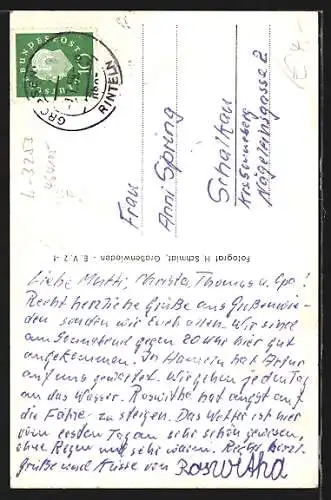 DEUTSCHE
BUNDESPOST
10
GROSSENWIEDEN
RINTELN
Frau
Anni Spring
Schalkau
Kr. Sonneberg
Nägeleinsgasse 2
Fotograf H. Schmidt, Großenwieden - E. V. 7
L-3253
Liebe Mutti, Christa, Thomas u. Opa!
Recht herzliche Grüße aus Großenwie-
den senden wir Euch allen. Wir sind
am Sonnabend gegen 20 Uhr hier gut
angekommen. In Hameln hat Artur
auf uns gewartet. Wir gehen jeden Tag
an das Wasser. Roswitha hat Angst auf
die Fähre zu steigen. Das Wetter ist hier
vom ersten Tag an sehr schön gewesen,
ohne Regen und sehr warm. Recht herzl.
Grüße und Küsse von Roswitha